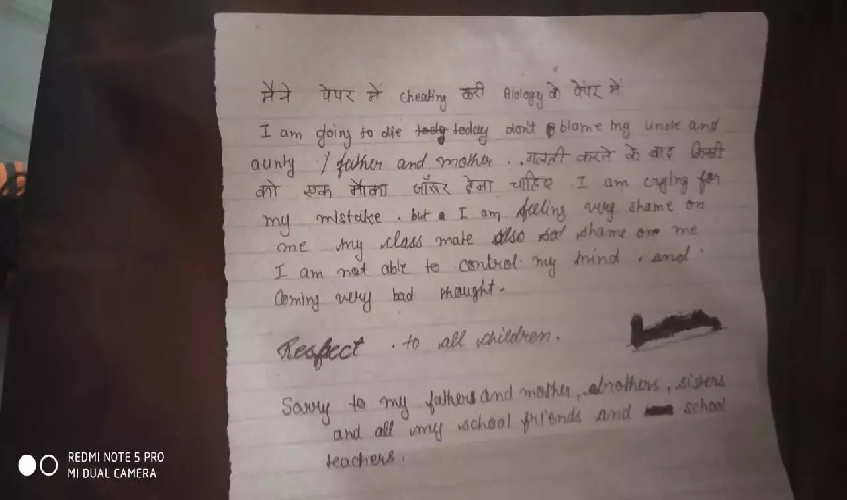 मैने पेपर में cheating करी Biology के पेपर में
I am going to die today don't blame my uncle and
aunty / father and mother . गलती करने के बाद किसी
को एक मौका जरूर देना चाहिए . I am crying for
my mistake . but I am feeling very shame on
me my class mate also shame on me
I am not able to control my mind . and
coming very bad thought .
Respect . to all children .
Sorry to my fathers and mother, brothers, sisters
and all my school friends and school
teachers .
REDMI NOTE 5 PRO
MI DUAL CAMERA